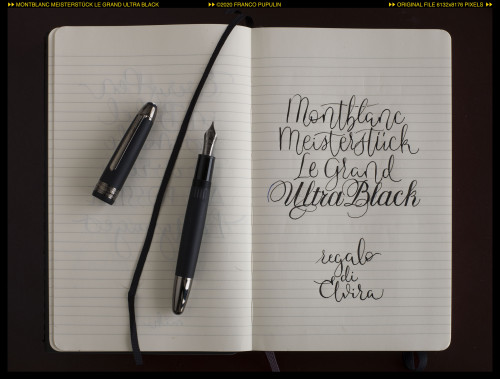 MONTBLANC MEISTERSTÜCK LE GRAND ULTRA BLACK
©2020 FRANCO PUPULIN
ORIGINAL FILE 6132x8176 PIXELS
Montblanc
Meisterstück
Le Grand
Ultra Black
regalo
di
Elvira